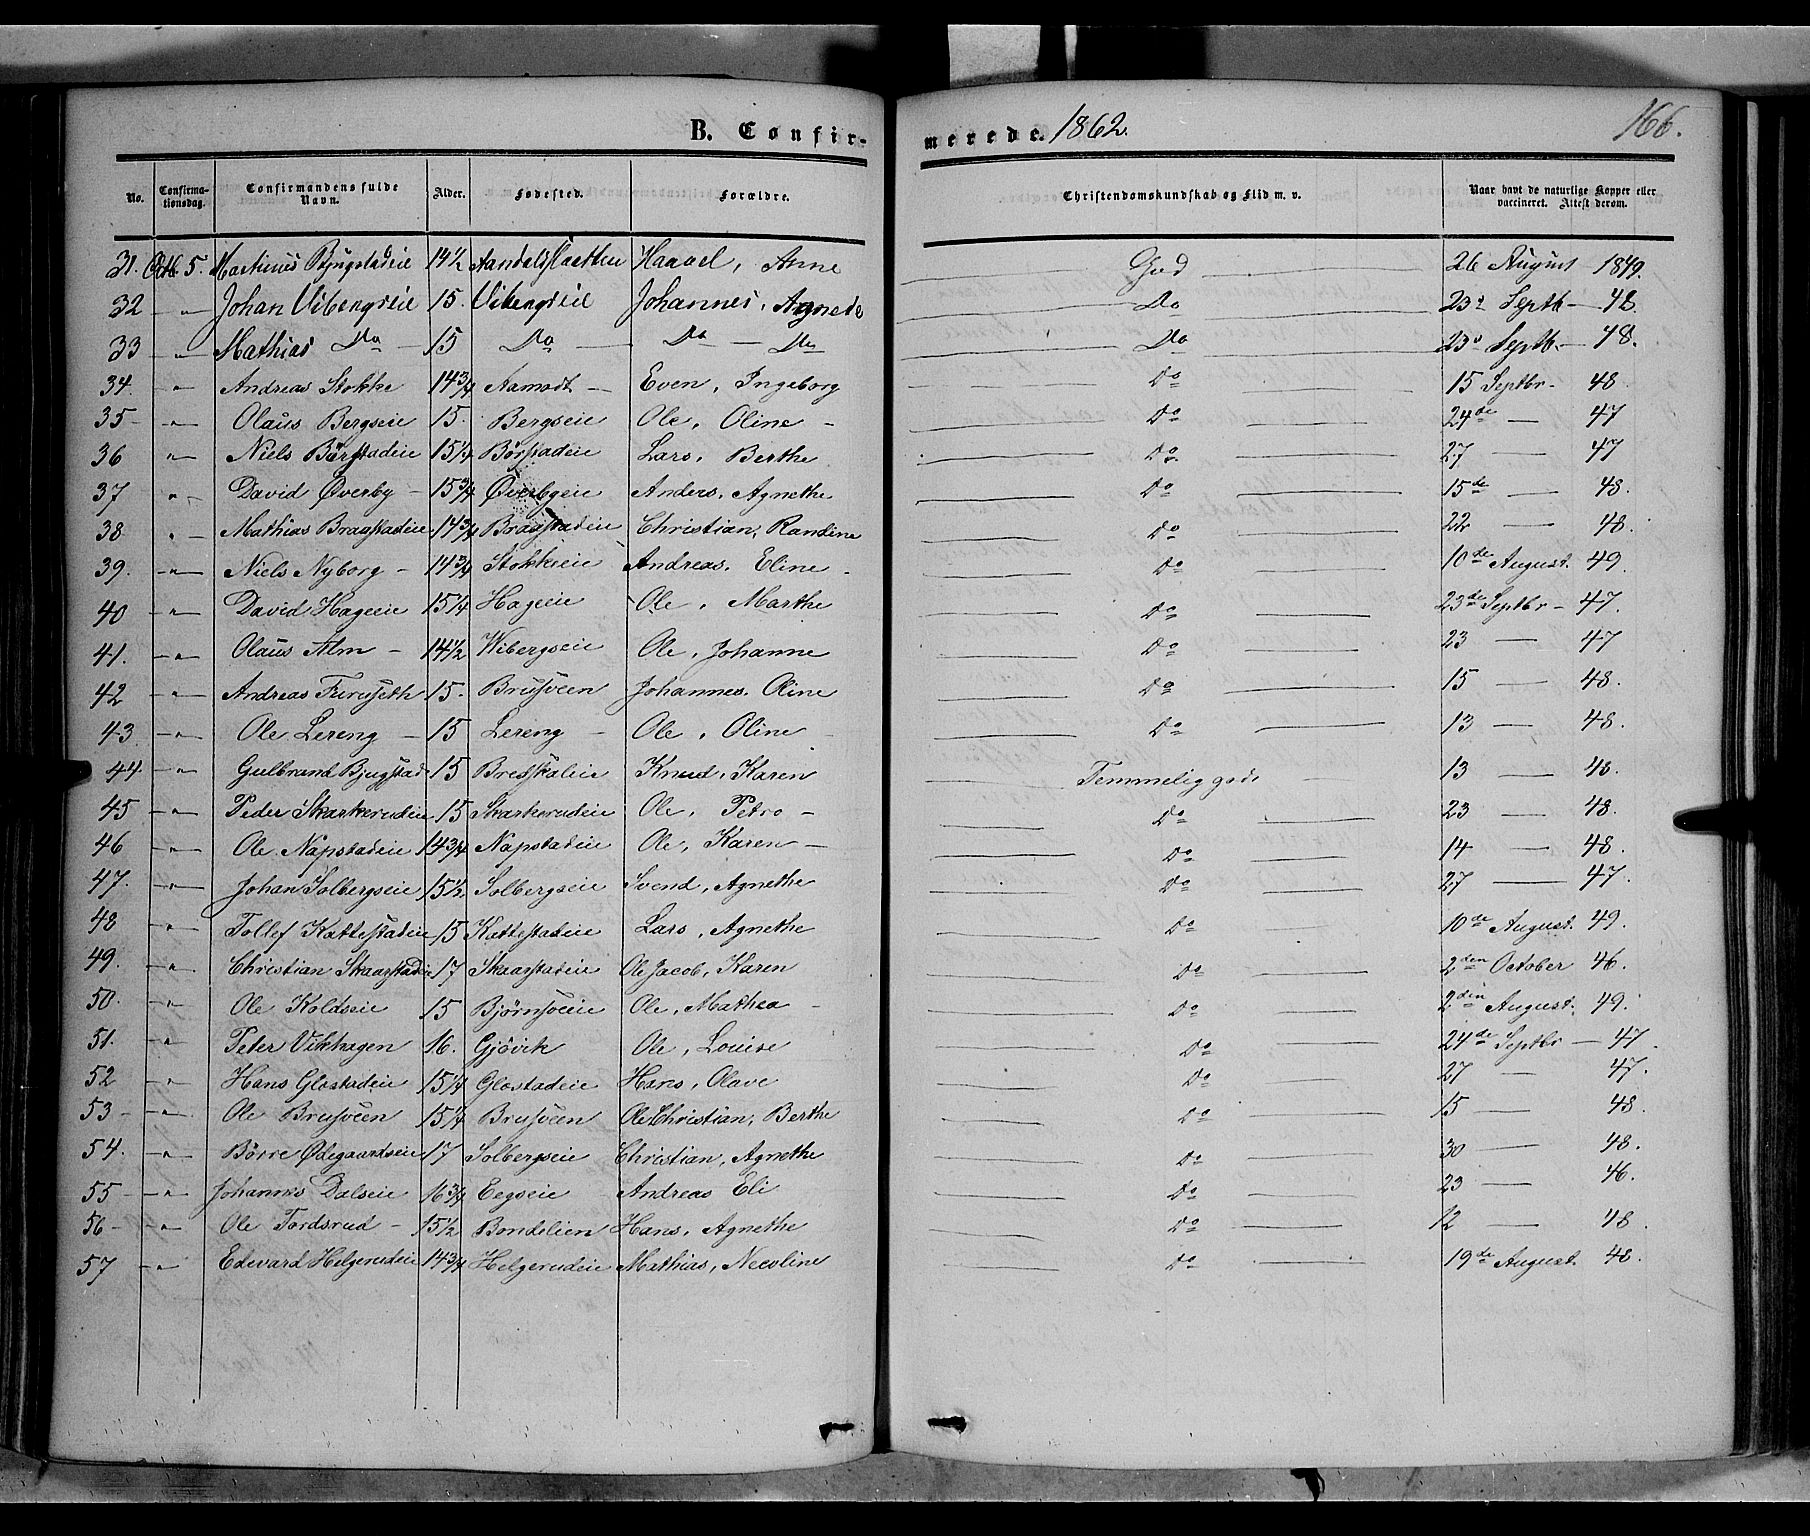 B. Confirmerede. 1862. 166.
No. Confirmationsdag. Confirmandens fulde Navn. Alder. Fødested. Forældre. Christendomskundskab og Flid m. v. Naar havt de naturlige Kopper eller vaccineret. Attest derom.
31. Octb. 5. Martinus Bjugstadeie 14½ Haavel, Anne God 26 August 1849.
32 " Johan Vibergseie 15. Vibergseie Johannes, Agnete Do 23d Septb. 48.
33 " Mathias Do 15 Do Do Do Do 23d Septb. 48.
34. " Andreas Stokke 14¾ Aamodt Even, Ingeborg Do 15 Septbr 48
35 " Olaus Bergseie 15. Bergseie Ole, Oline Do 24de 47
36 " Niels Börstadeie 15¼ Börstadeie Lars, Berthe Do 27 47
37 " David Øverby 15¾ Øverbyeie Anders, Agnethe Do 15de 48.
38 " Mathias Braastadeie 14¾ Braastadeie Christian, Randine Do 22 48.
39. " Niels Nyborg 14¾ Stokkeeie Andreas, Eline Do 10de August. 49.
40 " David Hageeie 15¼ Hageeie Ole, Marthe Do 23de Septbr 47.
41. " Olaus Alm 14½ Wibergseie Ole, Johanne Do 23 47
42 " Andreas Furuseth 15. Brusveen Johannes, Oline Do 15 48.
43. " Ole Lereng 15 Lereng Ole, Oline Do 13 48.
44. " Gulbrand Bjugstad 15 Knud, Karen Temmelig god 13 48.
45 " Peder Skarkerudeie 15 Skarkerudeie Ole, Petro Do 23 48.
46 " Ole Napstadeie 14¾ Napstadeie Ole, Karen Do 14 48.
47. " Johan Solbergseie 15½ Solbergseie Svend, Agnethe Do 27 47.
48 " Tollef Kattestadeie 15 Kattestadeie Lars, Agnethe Do 10de August. 49.
49. " Christian Skaarstadeie 17 Skaarstadeie Ole Jacob, Karen Do 2den October 46.
50. " Ole Koldseie 15 Bjørnsveeie Ole, Mathea Do 2den August. 49.
51. " Peter Vikhagen 16. Gjövik Ole, Louise Do 24de Septbr 47.
52 " Hans Glæstadeie 15¼ Glæstadeie Hans, Olave Do 27 47.
53 " Ole Brusveen 15¼ Brusveen Ole Christian, Berthe Do 15 48.
54. " Börre Ødegaardseie 17 Solbergseie Christian, Agnethe Do 30 48.
55 " Johannes Dalseie 16¾ Eegseie Andreas Eli Do 23 46.
56 " Ole Tordsrud 15½ Bondelien Hans, Agnethe Do 12 48.
57 " Edevard Helgerudeie 14¾ Helgerudeie Mathias, Nicoline Do 19de August. 48.